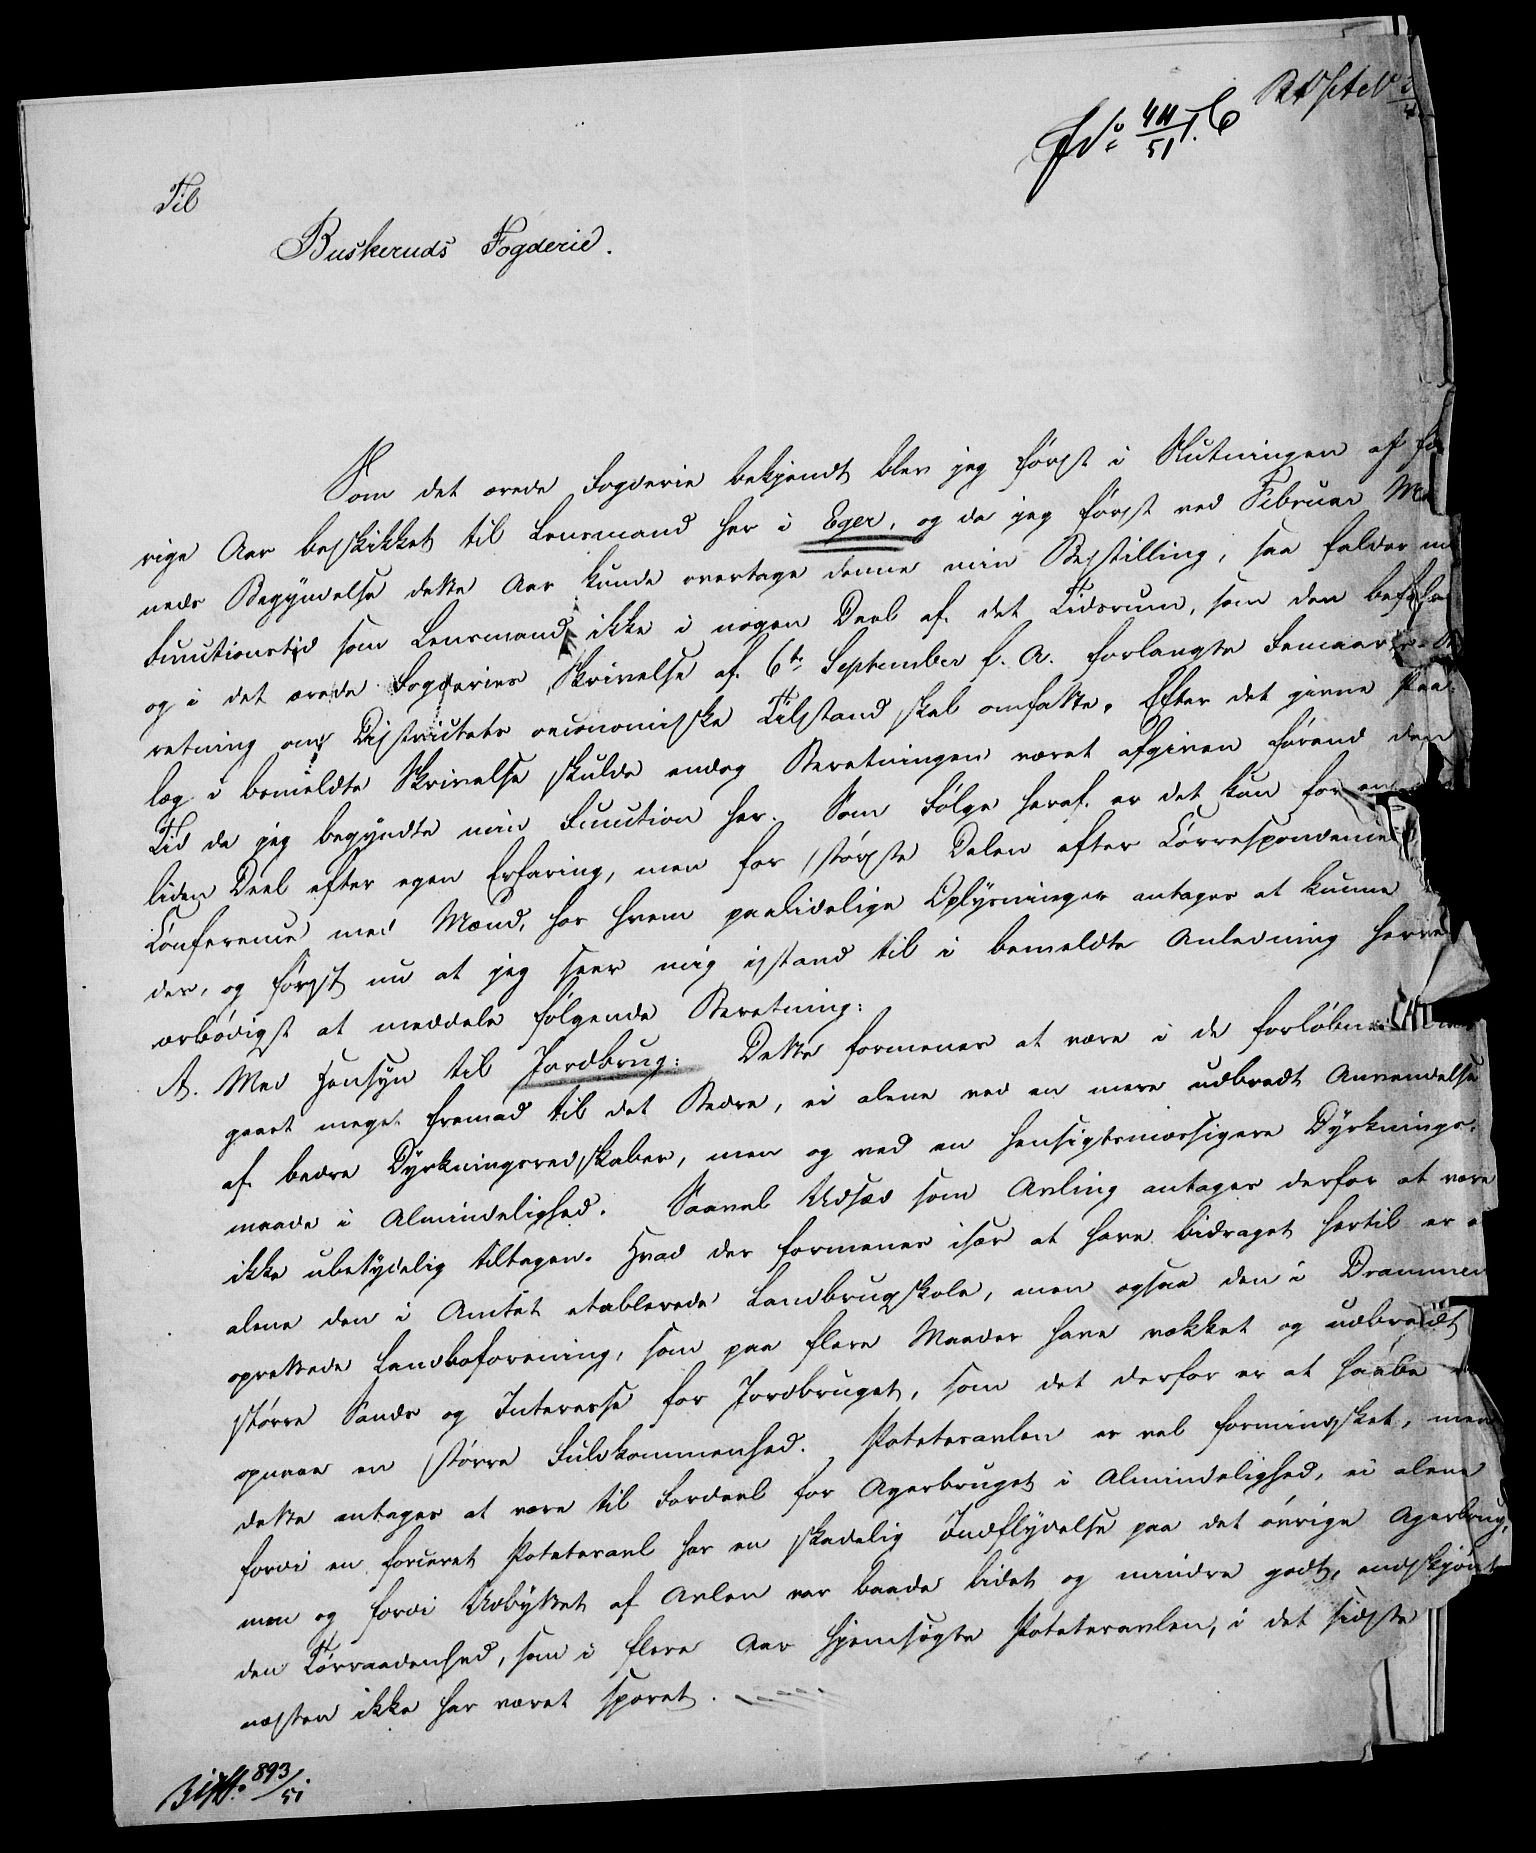 No 411/51. C
Til
Buskeruds Fogderie.
Som det ærede Fogderie bekjendt blev jeg først i Slutningen af for
rige Aar beskikket til Lensmand her i Eger, og da jeg først ved Februar Maa
neds Begyndelse dette Aar kunde overtage denne min Bestilling, saa falder min
Functionstid som Lensmand ikke i nogen Deel af det Tidsrum, som den befalede
og i det ærede Fogderies Skrivelse af 6te September f. A. forlangte Femaars-Be
retning om Districtets oeconomiske Tilstand skal omfatte. Efter det givne Paa-
læg i bemeldte Skrivelse skulde endog Beretningen været afgiven førend den
Tid da jeg begyndte min Function her. Som Følge heraf er det kun for en
liden Deel efter egen Erfaring, men for største Delen efter Correspondence
Conference med Mænd, hos hvem paalidelige Oplysninger antages at kunne
des, og først nu at jeg seer mig istand til i bemeldte Anledning herved
ærbødigst at meddele følgende Beretning:
A. Med Hensyn til Jordbrug: Dette formenes at være i de forløbne
gaaet meget fremad til det Bedre, ei alene ved en mere udbredt Anvendelse
af bedre Dyrkningsredskaber, men og ved en hensigtsmæssigere Dyrknings-
maade i Almindelighed. Saavel Udsæd som Avling antages derfor at være
ikke ubetydelig tiltagen. Hvad der formenes især at have bidraget hertil er ei
alene den i Amtet etablerede Landbrugskole, men ogsaa den i Drammen
oprettede Landboforening, som paa flere Maader have vækket og udbredt
større Sands og Interesse for Jordbruget, som det derfor er at haabe
opnaae en større Fuldkommenhed. Potetesavlen er vel formindsket, men
dette antages at være til Fordeel for Agerbruget i Almindelighed, ei alene
fordi en forceret Potetesavl har en skadelig Indflydelse paa det øvrige Agerbrug,
men og fordi Udbyttet af Avlen var baade lidet og mindre godt, endskjønt
den Tørraadenhed, som i flere Aar hjemsøgte Potetesavlen, i det sidste
næsten ikke har været sporet.
893/51